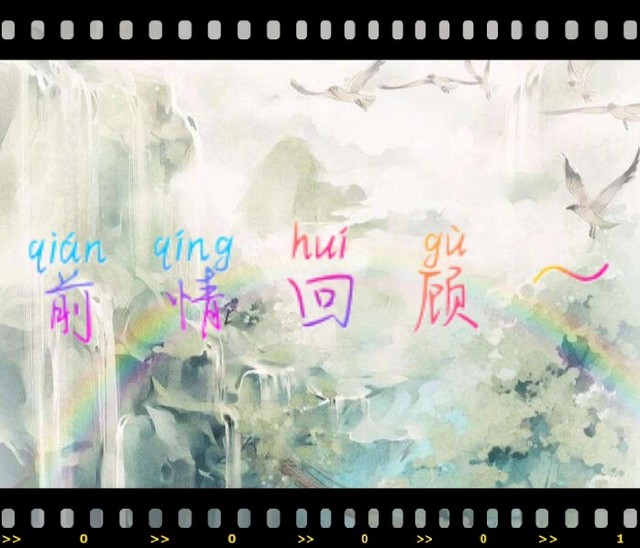 qián qíng huí gù
前情回顾~
>> 0 >> 0 >> 0 >> 0 >> 1